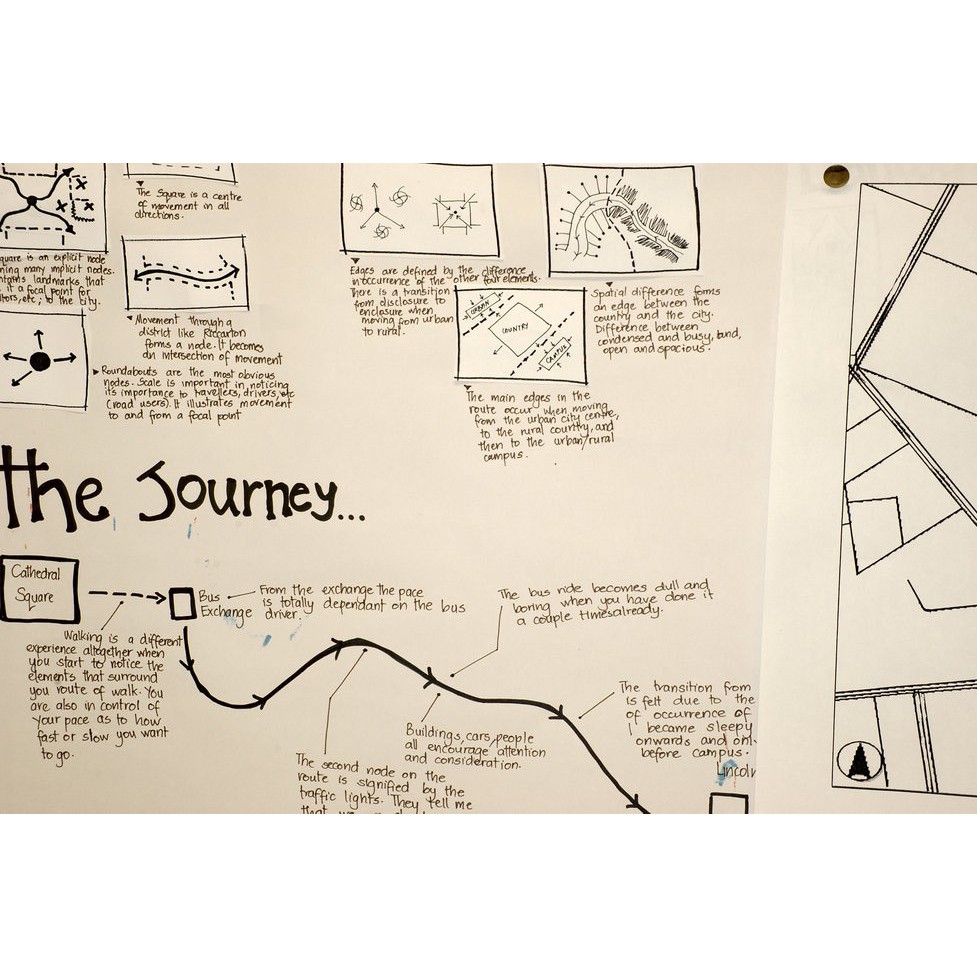 The Square is a centre
of movement in all
directions.
quare is an explicit node
ning many implicit nodes.
ntains landmarks that
it a focal point for
itors, etc; to the city.
Movement through a
district like Riccarton
forms a node. It becomes
an intersection of movement
Roundabouts are the most obvious
nodes. Scale is important in noticing
its importance to travellers, drivers, etc
(road users). It illustrates movement
to and from a focal point
Edges are defined by the difference
in occurrence of the other four elements.
There is a transition
from disclosure to
enclosure when
moving from urban
to rural.
URBAN
COUNTRY
CAMPUS
The main edges in the
route occur when moving
from the urban city centre,
to the rural country, and
then to the urban/rural
campus.
Spatial difference forms
an edge between the
country and the city.
Difference between
condensed and busy, and,
open and spacious.
the Journey...
Cathedral
Square
Bus
Exchange
From the exchange the pace
is totally dependant on the bus
driver.
The bus ride becomes dull and
boring when you have done it
a couple timesalready.
Walking is a different
experience altogether when
you start to notice the
elements that surround
you route of walk. You
are also in control of
your pace as to how
fast or slow you want
to go.
Buildings, cars, people
all encourage attention
and consideration.
The second node on the
route is signified by the
traffic lights. They tell me
that we
The transition from
is felt due to the
of occurrence of
I became sleepy
onwards and onl
before campus.
Lincoln